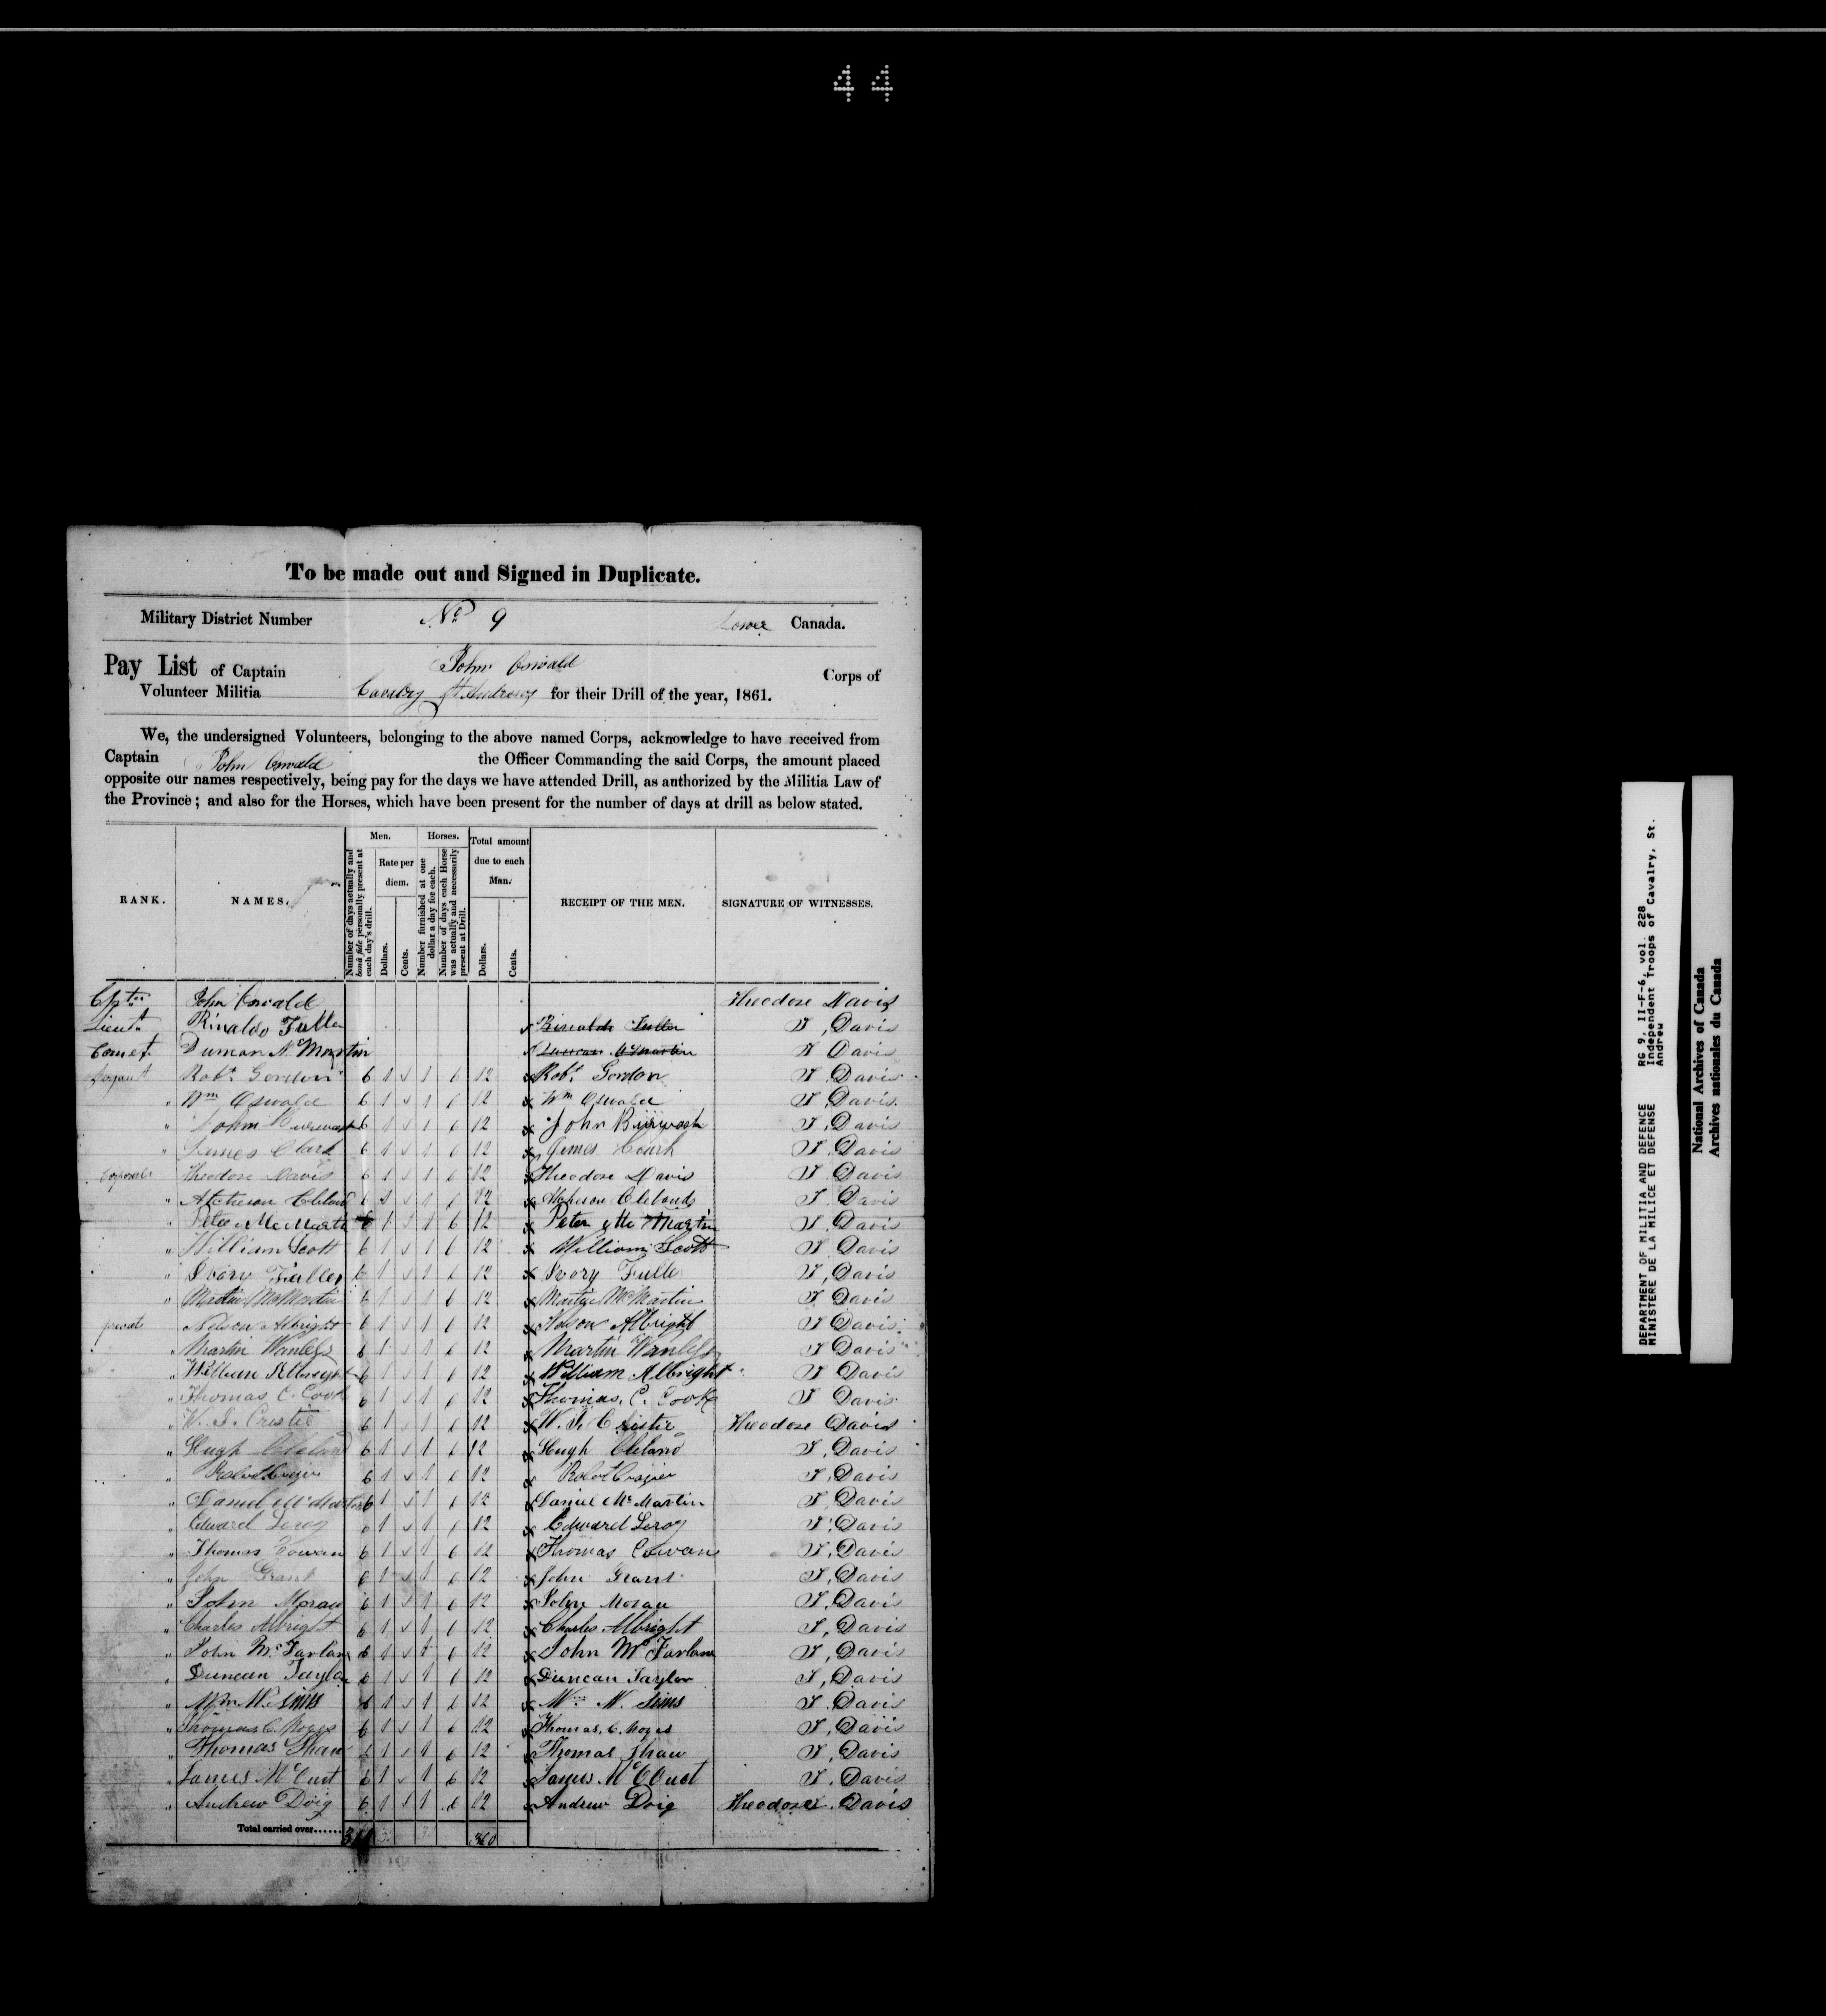 44
To be made out and Signed in Duplicate.
Military District Number No 9 Lower Canada.
Pay List of Captain John Oswald Corps of
Volunteer Militia Cavalry St Andrews for their Drill of the year, 1861.
We, the undersigned Volunteers, belonging to the above named Corps, acknowledge to have received from
Captain John Oswald the Officer Commanding the said Corps, the amount placed
opposite our names respectively, being pay for the days we have attended Drill, as authorized by the Militia Law of
the Province; and also for the Horses, which have been present for the number of days at drill as below stated.
RANK.
NAMES.
Men.
Number of days actually and bonâ fide personally present at each day's drill.
Rate per diem.
Dollars.
Cents.
Horses.
Number furnished at one dollar a day for each.
Number of days each Horse was actually and necessarily present at Drill.
Total amount due to each Man.
Dollars.
Cents.
RECEIPT OF THE MEN.
SIGNATURE OF WITNESSES.
John Oswald Theodore Davis
Lieut Rinaldo Fuller Rinaldo Fuller T, Davis
Cornet Duncan McMartin Duncan McMartin T Davis
Robt Gordon 6 1 1 6 12 Robt Gordon T Davis
" Wm Oswald 6 1 1 6 12 Wm Oswald T Davis
" John Burwash 6 1 1 6 12 John Burwash T Davis
" James Clark 6 1 1 6 12 James T Davis
Theodore Davis 6 1 1 6 12 Theodore Davis T Davis
" 6 1 1 6 12 T Davis
" Peter McMartin 6 1 1 6 12 Peter McMartin T Davis
" William Scott 6 1 1 6 12 William Scott T Davis
" Ivory Fuller 6 1 1 6 12 Ivory Fuller T, Davis
" Martin McMartin 6 1 1 6 12 McMartin T Davis
Nelson Albright 6 1 1 6 12 Nelson Albright T Davis
" Martin Wanless 6 1 1 6 12 Martin Wanless T Davis
" William Albright 6 1 1 6 12 William Albright T Davis
" Thomas C. Cook 6 1 1 6 12 Thomas, C. Cook T Davis
" W. J. Cristie 6 1 1 6 12 W. J. Cristie Theodore Davis
" Hugh Cleland 6 1 1 6 12 Hugh Cleland T, Davis
" Robert Crozier 6 1 1 6 12 Robert Crozier T, Davis
" Daniel McMartin 6 1 1 6 12 Daniel McMartin T, Davis
" Edward Leroy 6 1 1 6 12 Edward Leroy T, Davis
" Thomas Cowan 6 1 1 6 12 Thomas Cowan T, Davis
" John Grant 6 1 1 6 12 John Grant T, Davis
" John Moran 6 1 1 6 12 John Moran T, Davis
" Charles Albright 6 1 1 6 12 Charles Albright T, Davis
" John McFarlane 6 1 1 6 12 John McFarlane T, Davis
" Duncan Taylor 6 1 1 6 12 Duncan Taylor T, Davis
" Wm N. Sims 6 1 1 6 12 Wm N. Sims T. Davis
" Thomas C. Noyes 6 1 1 6 12 Thomas, C. Noyes T, Davis
" Thomas Shaw 6 1 1 6 12 Thomas Shaw T, Davis
" James 6 1 1 6 12 James T. Davis
" Andrew Doig 6 1 1 6 12 Andrew Doig Theodore. Davis
Total carried over...... 360
DEPARTMENT OF MILITIA AND DEFENCE
MINISTERE DE LA MILICE ET DEFENSE
RG 9, II-F-6, vol. 228
Independent Troops of Cavalry, St.
Andrew
National Archives of Canada
Archives nationales du Canada